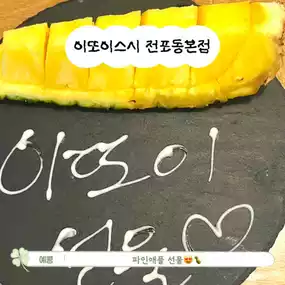 이또이스시 전포동본점
이또이
선물♡
예콩
파인애플 선물😍🍍